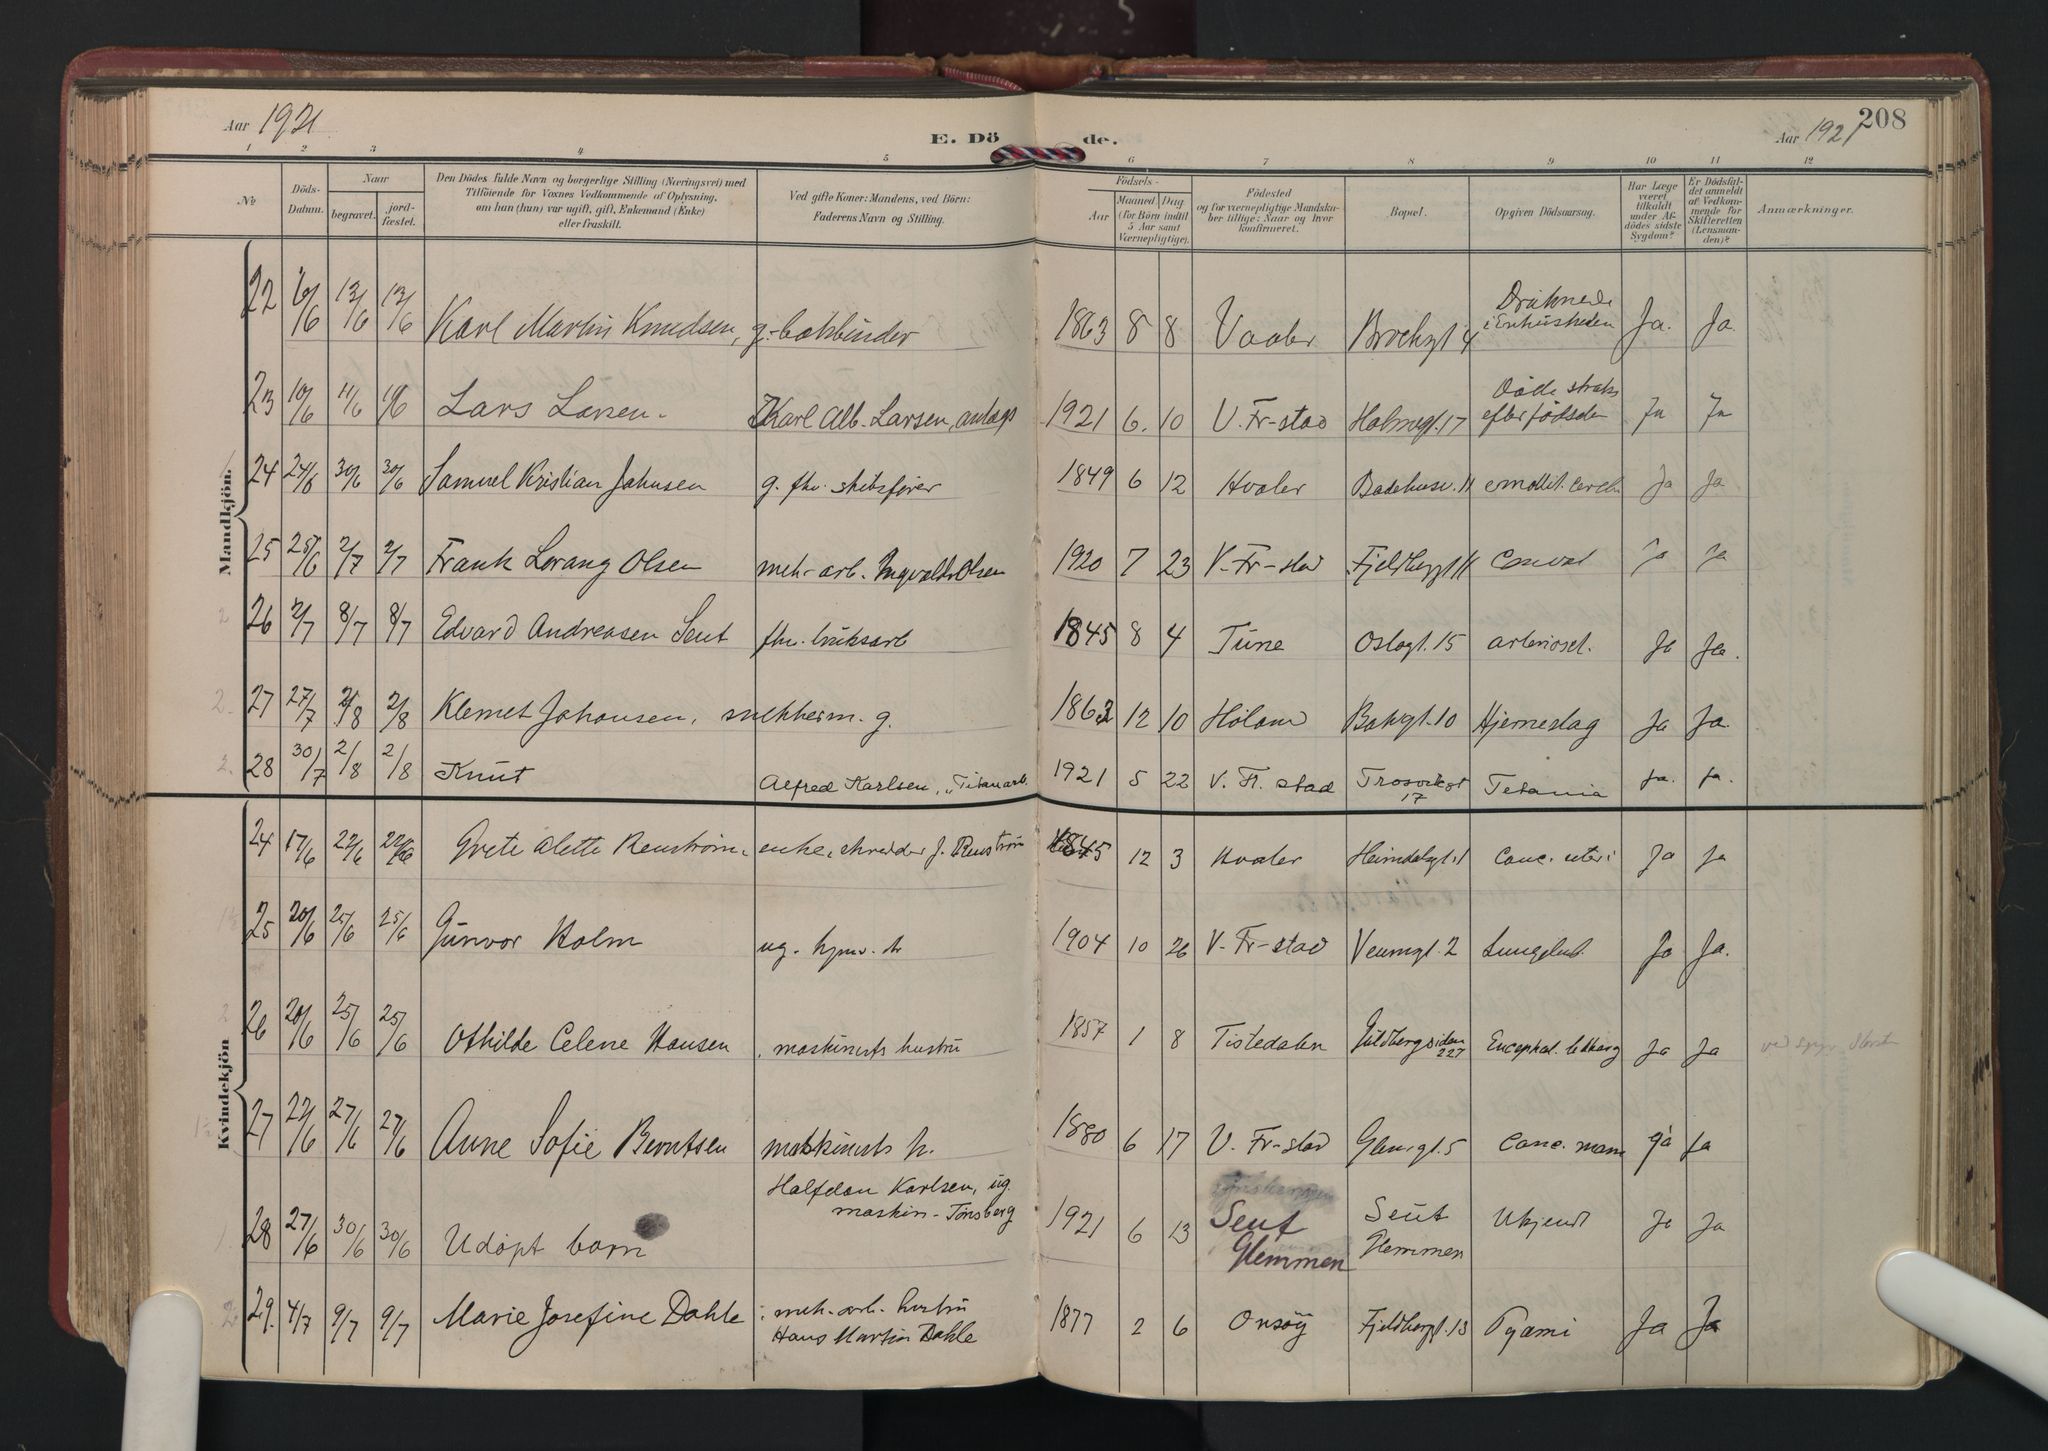 208
Aar 1921
E. Dö de.
Aar 1921
1 2 3 4 5 6 7 8 9 10 11 12
No
Döds-Datum.
Naar
begravet.
jordfæstet.
Den Dödes fulde Navn og borgerlige Stilling (Næringsvei) med
Tilföiende for Voxnes Vedkommende af Oplysning,
om han (hun) var ugift, gift, Enkemand (Enke)
eller fraskilt.
Ved gifte Koner: Mandens, ved Börn:
Faderens Navn og Stilling.
Födsels-
Aar
Maaned Dag
(for Börn indtil
5 Aar samt
Værnepligtige).
Födested
og for værnepligtige Mandsku-
ber tillige: Naar og hvor
konfirmeret.
Bopæl.
Opgiven Dödsaarsag.
Har Læge
været
tilkaldt
under Af-
dödes sidste
Sygdom?
Er Dödsfal-
det anmeldt
af Vedkom-
mende for
Skifteretten
(Lensman-
den)?
Anmærkninger.
Mandkjön.
22 10/6 13/6 13/6 Karl Martin Knudsen, g. bokbinder 1863 8 8 Vaaler Brochgt 4 Druknede i Ja. Ja.
23 10/6 11/6 Lars Larsen. Karl Alb. Larsen, 1921 6. 10 V. Fr-stad Holmegt. 17 Døde straks efter fødselen Ja Ja
24 24/6 30/6 30/6 Samuel Kristian Johnsen g. fhv. skibsfører 1849 6 12 Hvaler Badehusv. 11 emollit. cereb Ja Ja
25 25/6 2/7 2/7 Frank Lorang Olsen mek. arb. Olsen 1920 7 23 V. Fr-stad Fjeldberggt 11 Ja Ja
26 2/7 8/7 8/7 Edvard Andreasen Seut fhv. bruksarb 1845 8 4 Tune Oslogt. 15 arteriosel. Ja Ja.
27 27/7 2/8 2/8 Klemet Johansen, g. 1863 12 10 Høland Bakgt. 10 Hjerneslag Ja Ja.
28 30/7 2/8 2/8 Knut Alfred Karlsen, "Titanarb. 1921 5 22 V. Fr. stad Trosvikgt 17 Tetania Ja. Ja.
Kvindekjön
24 17/6 22/6 22/6 Grete Alette Renstrøm, enke, skredder J. Renstrøm 1845 12 3 Hvaler Heimdalgt. 1 Canc. uteri Ja Ja
25 20/6 25/6 25/6 Gunvor Holm ug. hjmv. 1904 10 26 V. Fr-stad Veumgt. 2 Ja Ja.
26 20/6 25/6 25/6 Othilde Celene Hansen, maskinists hustru 1857 1 8 Tistedalen 227 Encephal. Ja Ja
27 22/6 27/6 27/6 Anne Sofie Berntsen maskinists h. 1880 6 17 V. Fr-stad Glemgt. 5 Canc. mam Ja Ja
28 27/6 30/6 30/6 Udøpt barn Halfdan Karlsen, ug. maskin - Tønsberg 1921 6 13 Seut Glemmen Seut Glemmen Ukjendt Ja Ja
29. 4/7 9/7 9/7 Marie Josefine Dahle: mek. arb. hustru Hans Martin Dahle 1877 2 6 Onsøy Fjeldberggt. 13 Pyæmi Ja Ja